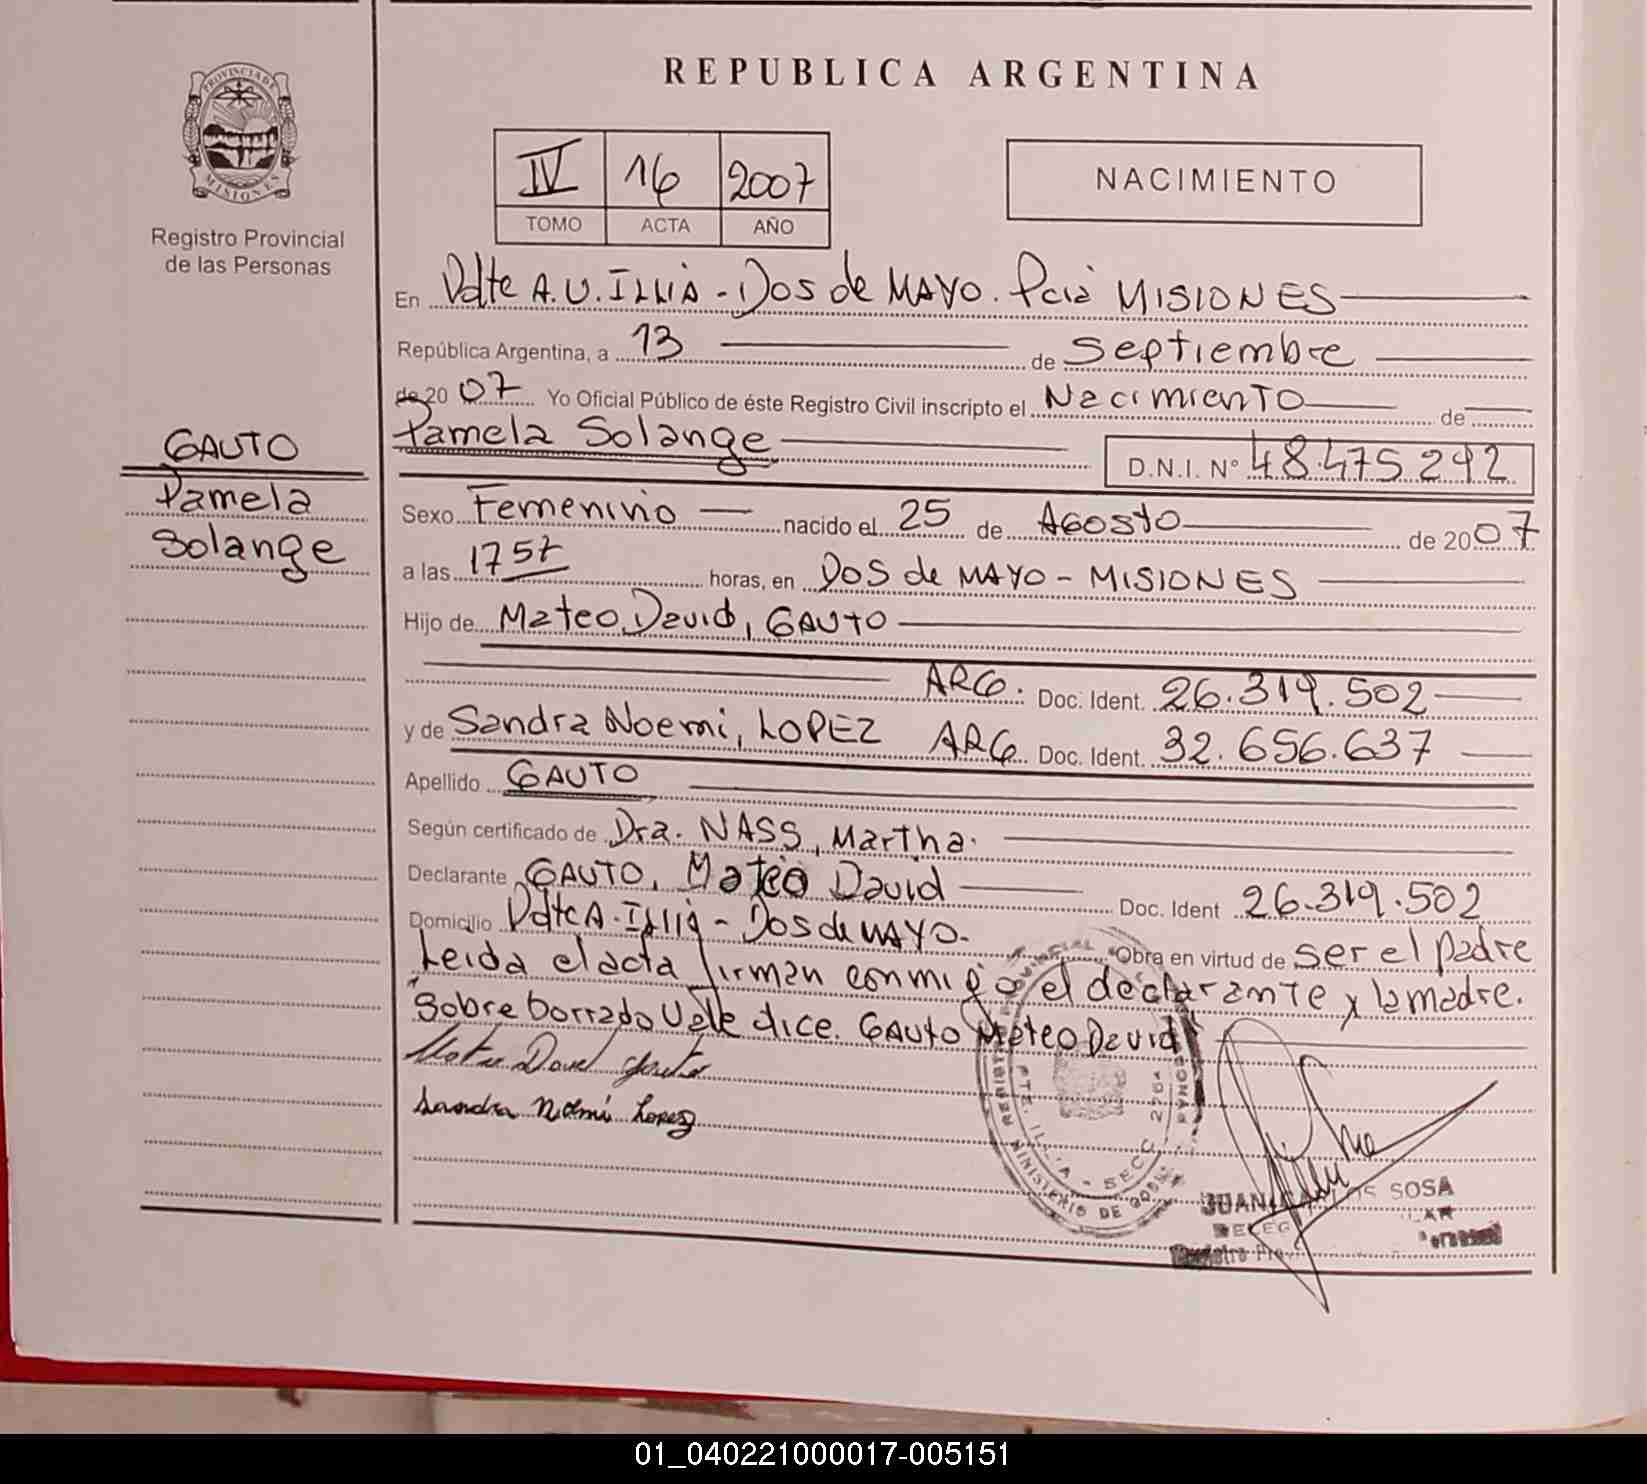 REPUBLICA ARGENTINA
PROVINCIA DE
MISIONES
Registro Provincial
de las Personas
IV 16 2007
TOMO ACTA AÑO
NACIMIENTO
En Pdte A.U. ILLIA - Dos de MAYO. Pcia MISIONES
República Argentina, a 13 de Septiembre
de 20 07 Yo Oficial Público de éste Registro Civil inscripto el Nacimiento de
Pamela Solange D.N.I. Nº 48.475.292
GAUTO
Pamela
Solange
Sexo Femenino nacido el 25 de Agosto de 2007
a las 17 57 horas, en Dos de MAYO - MISIONES
Hijo de Mateo David, GAUTO
ARG. Doc. Ident. 26.319.502
y de Sandra Noemi, LOPEZ ARG Doc. Ident. 32.656.637
Apellido GAUTO
Según certificado de Dra. NASS, Martha.
Declarante GAUTO, Mateo David Doc. Ident 26.319.502
Domicilio Pdte A. Illia - Dos de MAYO.
Obra en virtud de ser el padre
Leida el acta firman conmigo el declarante y la madre.
Sobre borrado Vale dice. GAUTO Mateo David
Mateo David Gauto
Sandra Noemi Lopez
PTE. ILLIA - SECC.
MINISTERIO DE
JUAN CARLOS SOSA
01_040221000017-005151